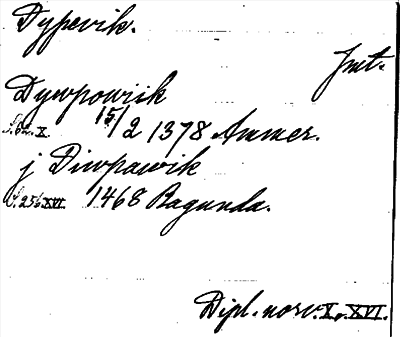 Dypevik.
Jmt.
Dywpowiik
S. 62. X. 15/2 1378 Ammer.
j Diwpawik
S. 256 XVI. 1468 Ragunda.
Dipl. norv. X, XVI.